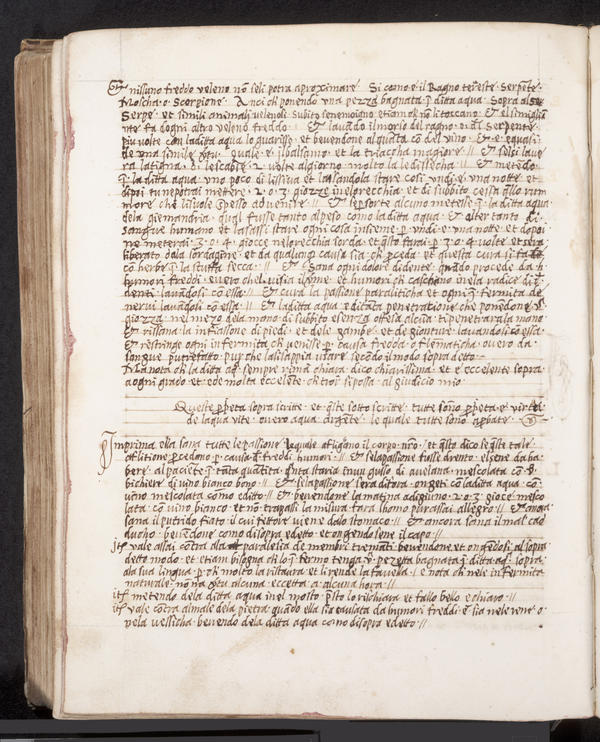 Et nissuno freddo veleno nõ seli potra aproximare · Si como e il Ragno terreste Serpẽte ·
Moscha · o · Scorpione · Anci ch ponendo vna pezza bagnata ĩ ditta aqua · Sopra al
Serpe · et simili animali velenosi subito
nte fa dogni altro veleno freddo · // · Et lavãdo il morso del ragno · o dil Serpente ·
piu volte con la ditta aqua lo guarisse · et bevendone alquãta cõ del vino · Et e equasi
de vna simile · quale · e · il balsamo · et la triacha magiore · // · Et se lsi lave
ra la tigna · di le · 2 · volte al giorno · molto la · // · Et metẽdo
ĩ la ditta aqua vno poco di lissiva et lassandola stare cosi · vndie · e vna notte · et
dipoi tu ne potrai metere · 2 · o · 3 · giozze inelorecchia · et di subbito cessa q̃llo rum
more che li suole spesso advenire · // · Et se p sorte alcuno metesse ĩ la ditta aqua
dela giemandria · qual fusse tanto al peso como la ditta aqua · Et alter tanto di
Sangue humano et lasassi stare ogni cosa insieme p vndie · e vna notte · et dopoi
ne meterai · 3 · o · 4 · giocce nelorecchia sorda · et q̃sto farai · p 3 · o · 4 volte · et sera
liberato dala sordagine · et da qualunq causa sia ch p̃ceda · et questa cura si fa
cõ herbe ĩ la stuffa secca · // · Et · Sana ogni dolore di dente · quãdo procede da
humori freddi · evero chel visia · et humori ch caschano inela radice di
denti · lavãdosi cõ essa · // · Et cura la passione paraliticha et ogni ĩfermita de
nervi lavãdosi cõ essa · // · Et la ditta aqua e di tãta penetratione che ponẽdone ·
giozza · nel mezo dela mono · di subbito e senza offesa alcũa · ti penetrara la mono
Et rissana la infiassone di piedi · et dele gambe · et de gionture · lavandosi cõ essa
Et restringe ogni infermita ch venisse · p causa fredda · o flematicha · overo da
sangue putrefatto · pur che la si sappia vsare · secõdo il modo sopra detto · –
Ma nota ch la ditta aq̃ sempre rima chiara · dico chiarissima · et e eccelente sopra
a ogni grado · et e de molta eccelẽte ch · al giudicio mio ·
Queste pp̃eta sopra scritte · et q̃ste sotto scritte · tutte sonno pp̃eta · e virtu
de la qua vite · overo aqua argẽte · le quale tutte sonno apbate ·
Imprima ella sana tutte le passione · le quale afligono il corpo nr̃o · et q̃sto dico se q̃ste tale
aflitione p̃cedano · p causa d freddi humori · // · Et se la passione fusse drento · el sene da ba
bere · al paciẽte ĩ tata quãtita · q̃nta staria in un gusso di avelana · mescolata cõ
bichiere di vino bianco bono · // · Et se la passione sera difora · ongeti cõ la ditta aqua · cõ
vino mescolata como e ditto · // · Et bevendone la matina adigiuno · 2 · o · 3 · gioce mesco
lata · cõ vino bianco · et nõ trapassi la misura · fara lhomo pur assai allegro · // · Et ancora
sana il putrido fiato · il cui fettore viene dalo stomaco · // · Et ancora sana il mal cad
ducho · bevendone como disopra e detto · et ongendosene il capo · //
jtẽ vale assai cõtra ala parallesia de membre tremãti · bevendone · et ongẽdosi · al sopra
detto modo · et etiam bisogna ch lo ĩfermo tenga · pezetta bagnata ĩ ditta aq̃ · sopra
ala sua lingua · p ch molto la ristaura · et li rende la favella · e nota ch nele infermita
naturale · nõ ha alcuna · eccetta · a alcuna hora · //
itẽ metendo dela ditta aqua in el mosto · p̃sto lo rischiara · et fallo bello · e chiaro · //
itẽ vale cõtra al male dela pietra · quãdo ella sia causata da humori freddi · e sia nele rene · o
nela vessicha · bevendo dela ditta aqua como disopra e detto · //